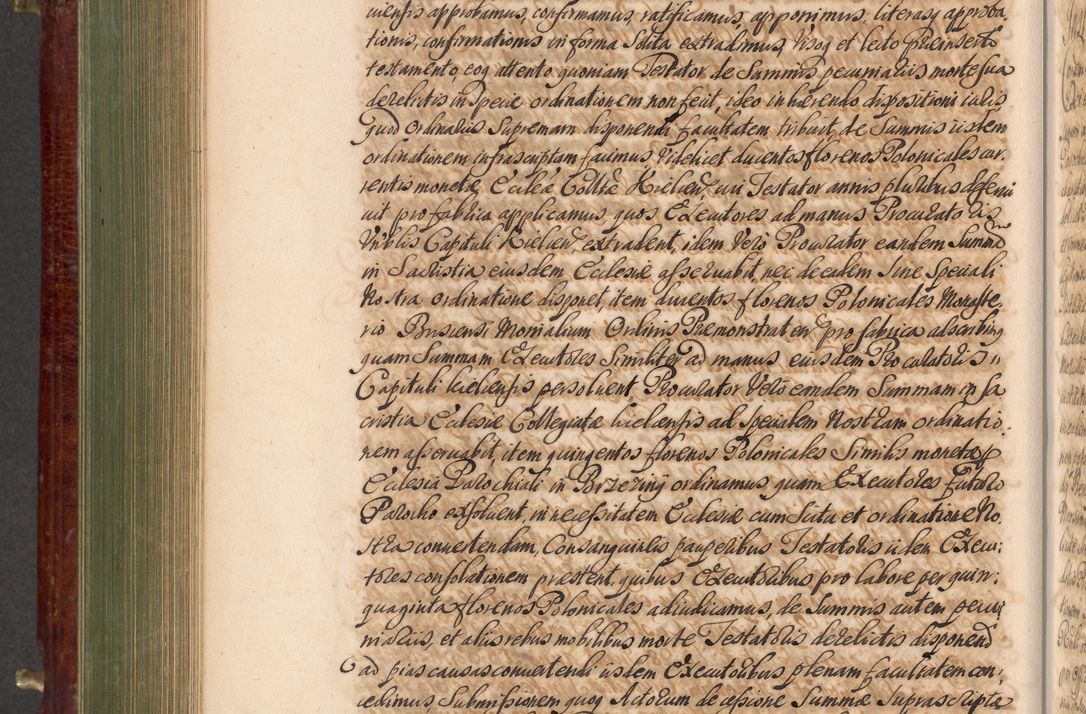 uiensis approbamus, confirmamus, ratificamus, apponimus, literasq approba
tionis, confirmationis in forma Solita extradimus, Visoq et lecto Præinserto
testamento, eoq attento quoniam Testator de Summis pecuniariis morte sua
derelictis in Specie ordinationem non fecit, ideo inhærendo dispositioni iuris
quod Ordinariis Supremam disponendi facultatem tribuit, de Summis iisdem
ordinationem infrascriptam facimus, Videlicet ducentos florenos Polonicales cur.
rentis monetæ Ecclæ Colltæ Kielcen, cui Testator annis pluribus deserui
uit pro fabrica applicamus, quos Executores ad manus Procuratoris
Vnblis Capituli Kielcen extradent, idem Vero Procurator eandem Summam
in Sacristia eiusdem Ecclesiæ asseruabit, nec de eadem Sine Speciali
Nostra ordinatione disponet, item ducentos florenos Polonicales Monaste.
rio Busiensi Monialium Ordinis Præmonstraten pro fabrica adscribimq
quam Summam Executores Similiter ad manus eiusdem Procuratoris
Capituli kielcensis persoluent, Procurator Vero eandem Summam in Sa
cristia Ecclesiæ Collegiatæ kielcensis ad Specialem Nostram ordinatio.
nem asseruabit, item quingentos florenos Polonicales Similis monetæ
Ecclesiæ Parochiali in Brzeziny ordinamus, quam Executores futuro
Parocho exsoluent, in necessitatem Ecclesiæ cum Scitu et ordinatione No.
stra conuertendam, Consanguineis pauperibus Testatoris iidem Execu:
tores consolationem præstent, quibus Executoribus pro labore per quin:
quaginta florenos Polonicales adiudicamus, de Summis autem pecu
niariis, et aliis rebus mobilibus morte Testatoris derelictis disponend
ad pias causas conuertendi iisdem Executoribus plenam facultatem con:
cedimus Submissionem quoq Actorum de cessione Summæ Suprascriptæ